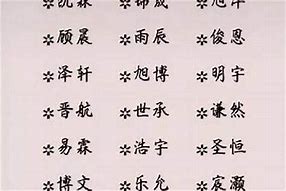 ✲顾晨 ✲雨辰 ✲俊恩
✲泽轩 ✲旭博 ✲明宇
✲晋航 ✲世承 ✲谦然
✲易霖 ✲浩宇 ✲圣恒
✲博文 ✲乐允 ✲宸灏